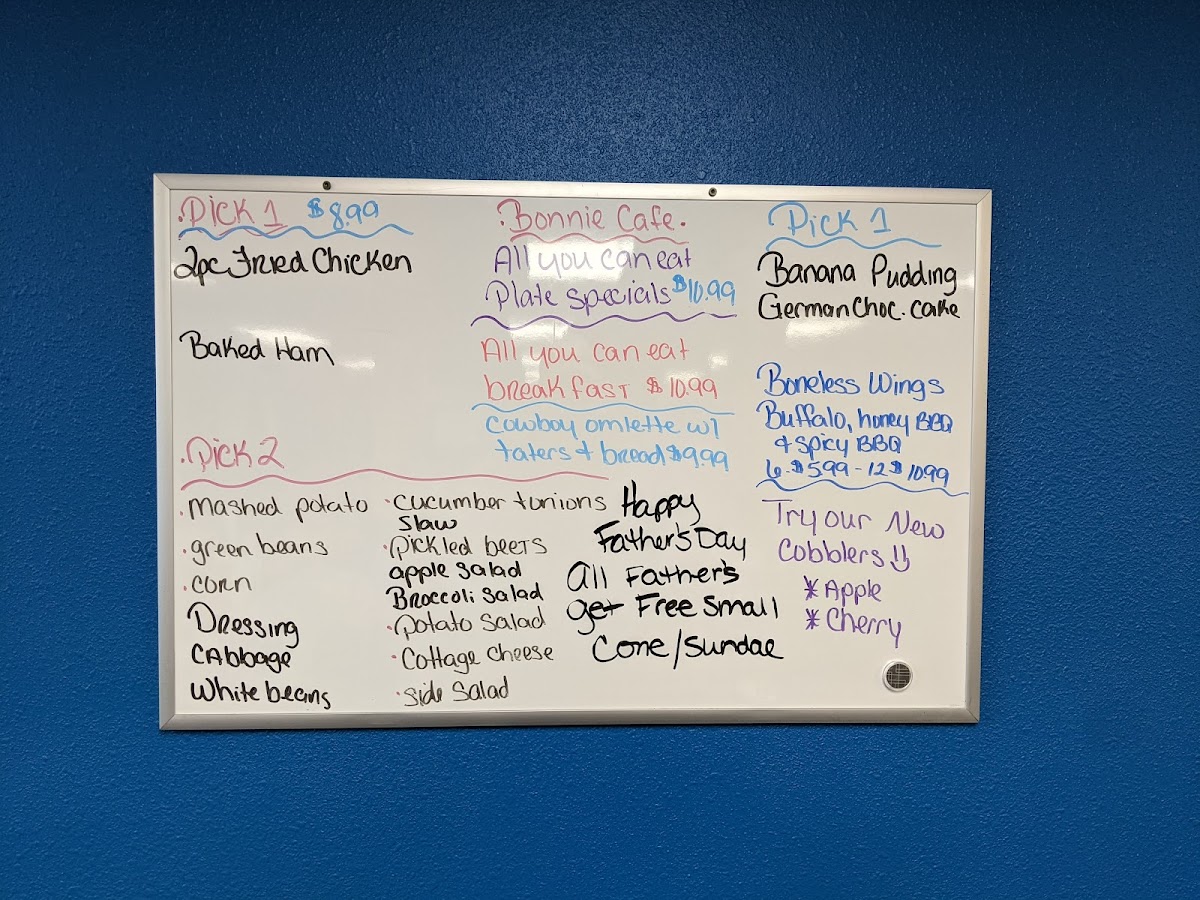 .Pick 1 $8.99
2pc Fried Chicken
Baked Ham
.Pick 2
.mashed potato
.green beans
.corn
Dressing
Cabbage
White beans
.cucumber + onions
Slaw
.pickled beets
apple Salad
Broccoli Salad
.Potato Salad
.Cottage cheese
.side Salad
.Bonnie Cafe.
All you can eat
Plate specials $10.99
All you can eat
breakfast $10.99
Cowboy omlette w/
taters + bread $9.99
Happy
Father's Day
All Father's
get Free Small
Cone/Sundae
Pick 1
Banana Pudding
German Choc. Cake
Boneless Wings
Buffalo, honey BBQ
+ Spicy BBQ
6-$5.99-12 $10.99
Try our New
Cobblers :)
*Apple
*Cherry